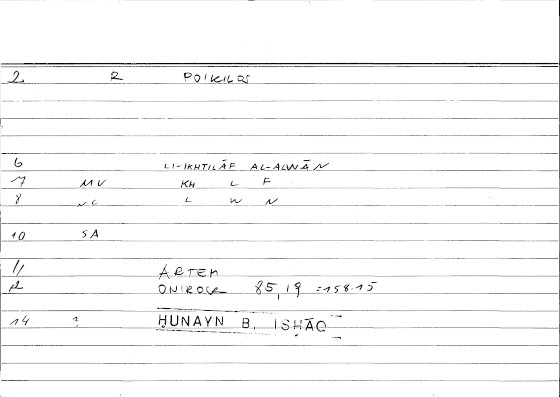 2 2 POIKILOS
6 LI-IKHTILĀF AL-ALWĀN
7 MV KH L F
8 NC L W N
10 SA
11 ARTEM
12 ONIROCR 85,19 =158.15
14 ? ḤUNAYN B. ISḤĀQ